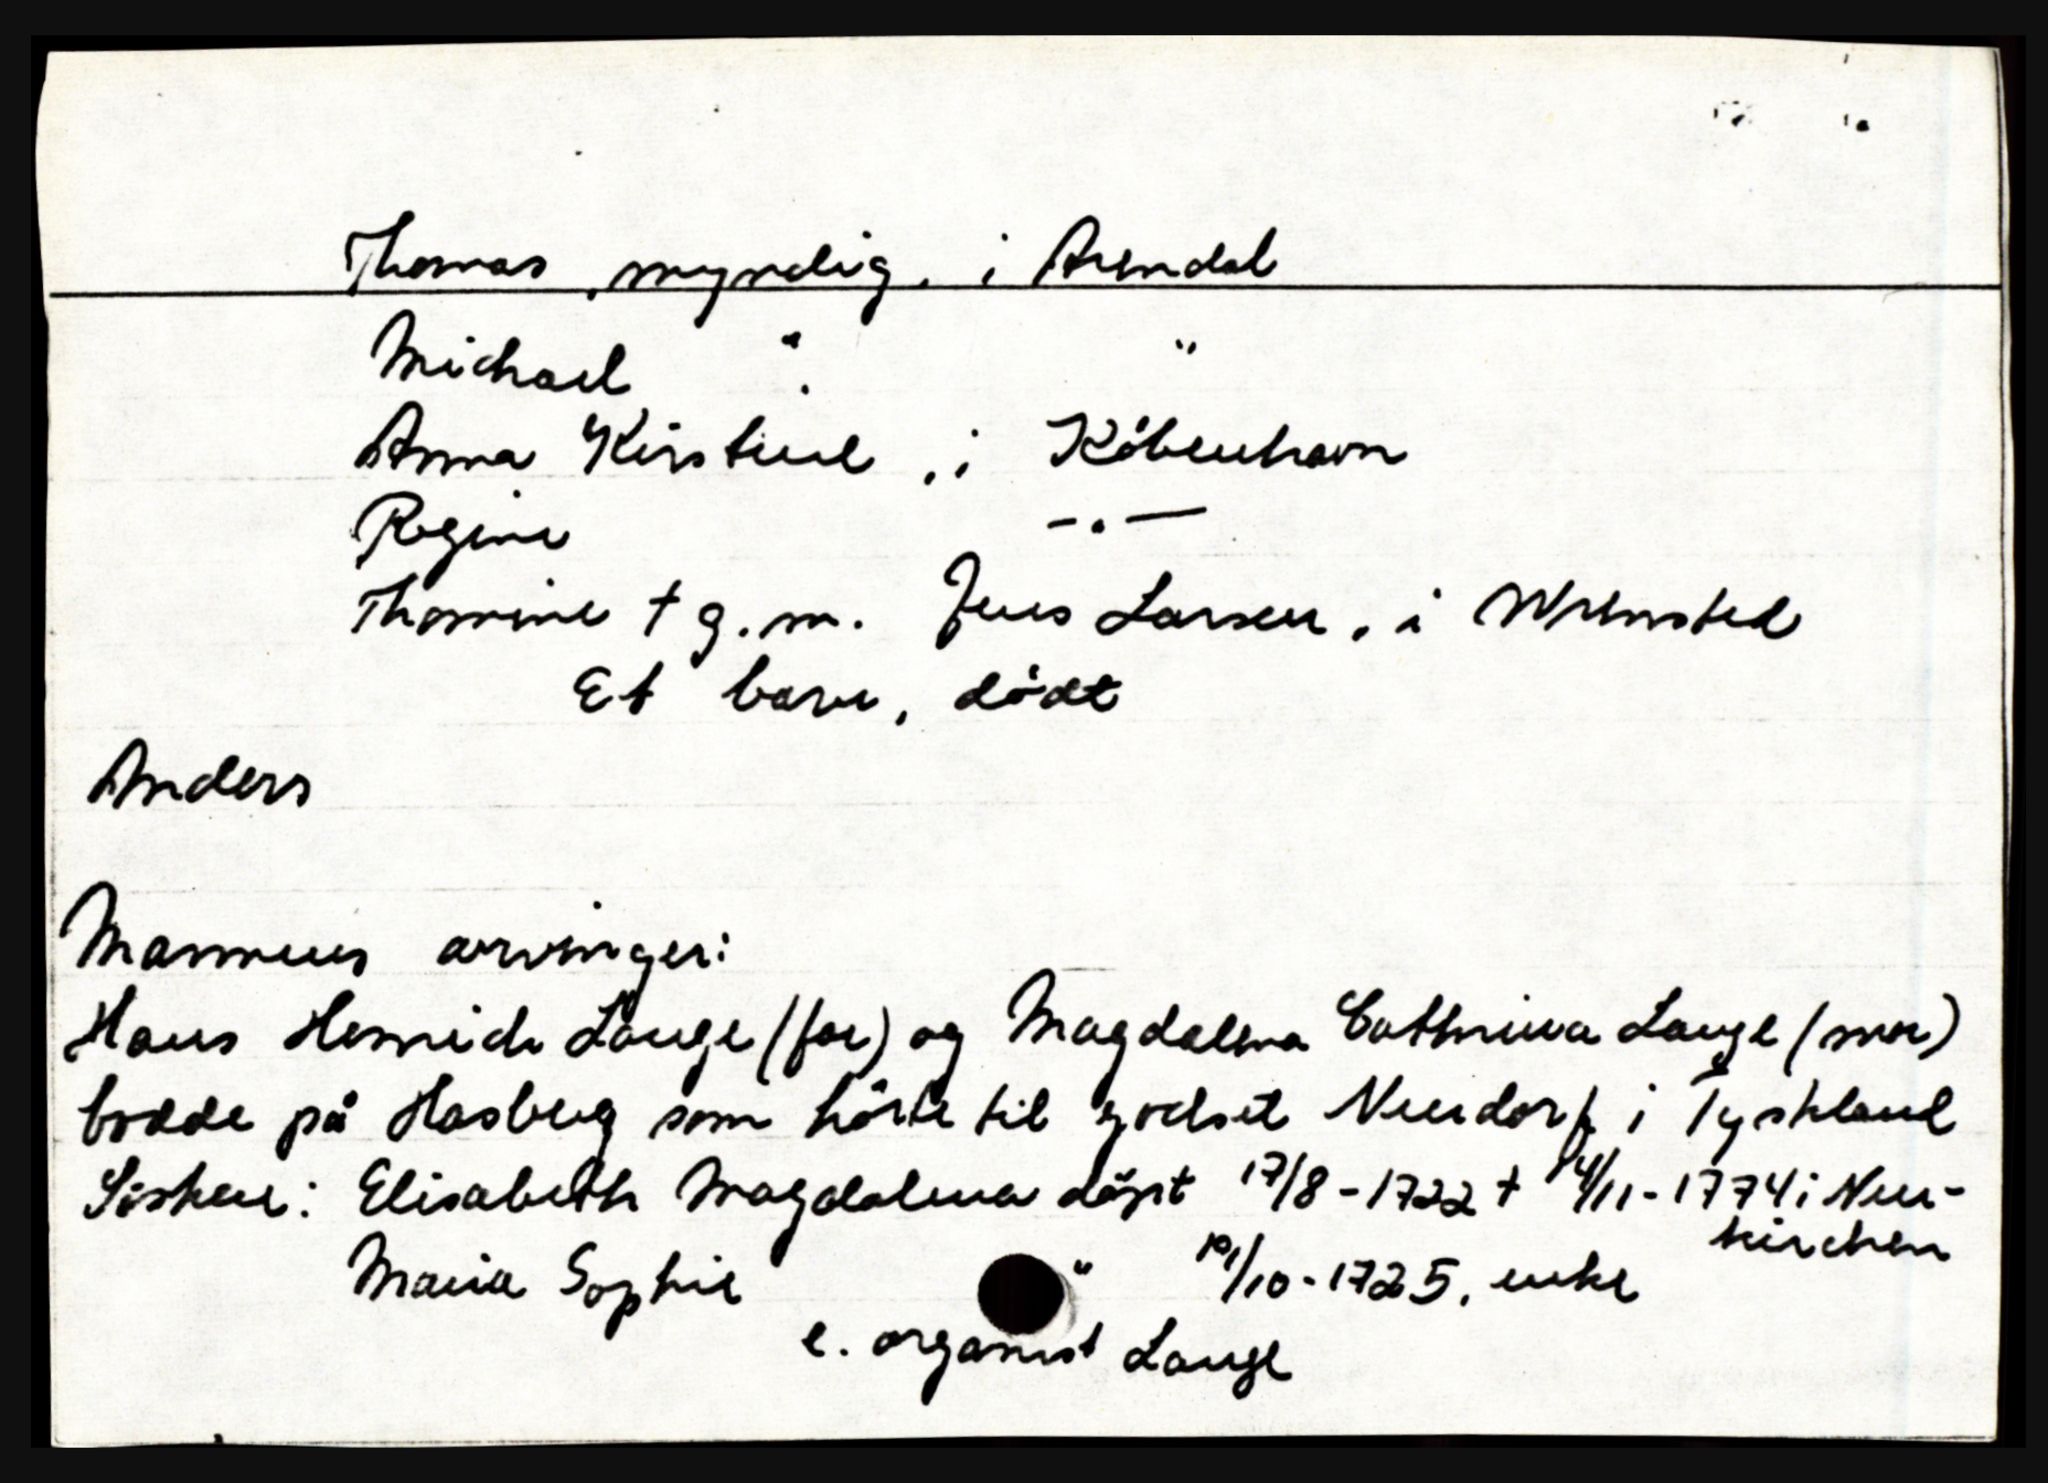 Thomas, myndig, i Arendal
Michael " . "
Anna Kirstine, i København
Regine — " —
Thomine † g.m. Jens Larsen, i
Et barn, dødt
Anders
Mannens arvinger:
Hans Henrich Lange (far) og Magdalena Cathrina Lange (mor)
bodde på Hasberg som hörte til godset Neudorf i Tyskland
Søsken: Elisabeth Magdalena döpt 17/8-1722 † 14/11-1774 i Neu-
kirchen
Maria Sophie " /10-1725, enke
e. organist Lange